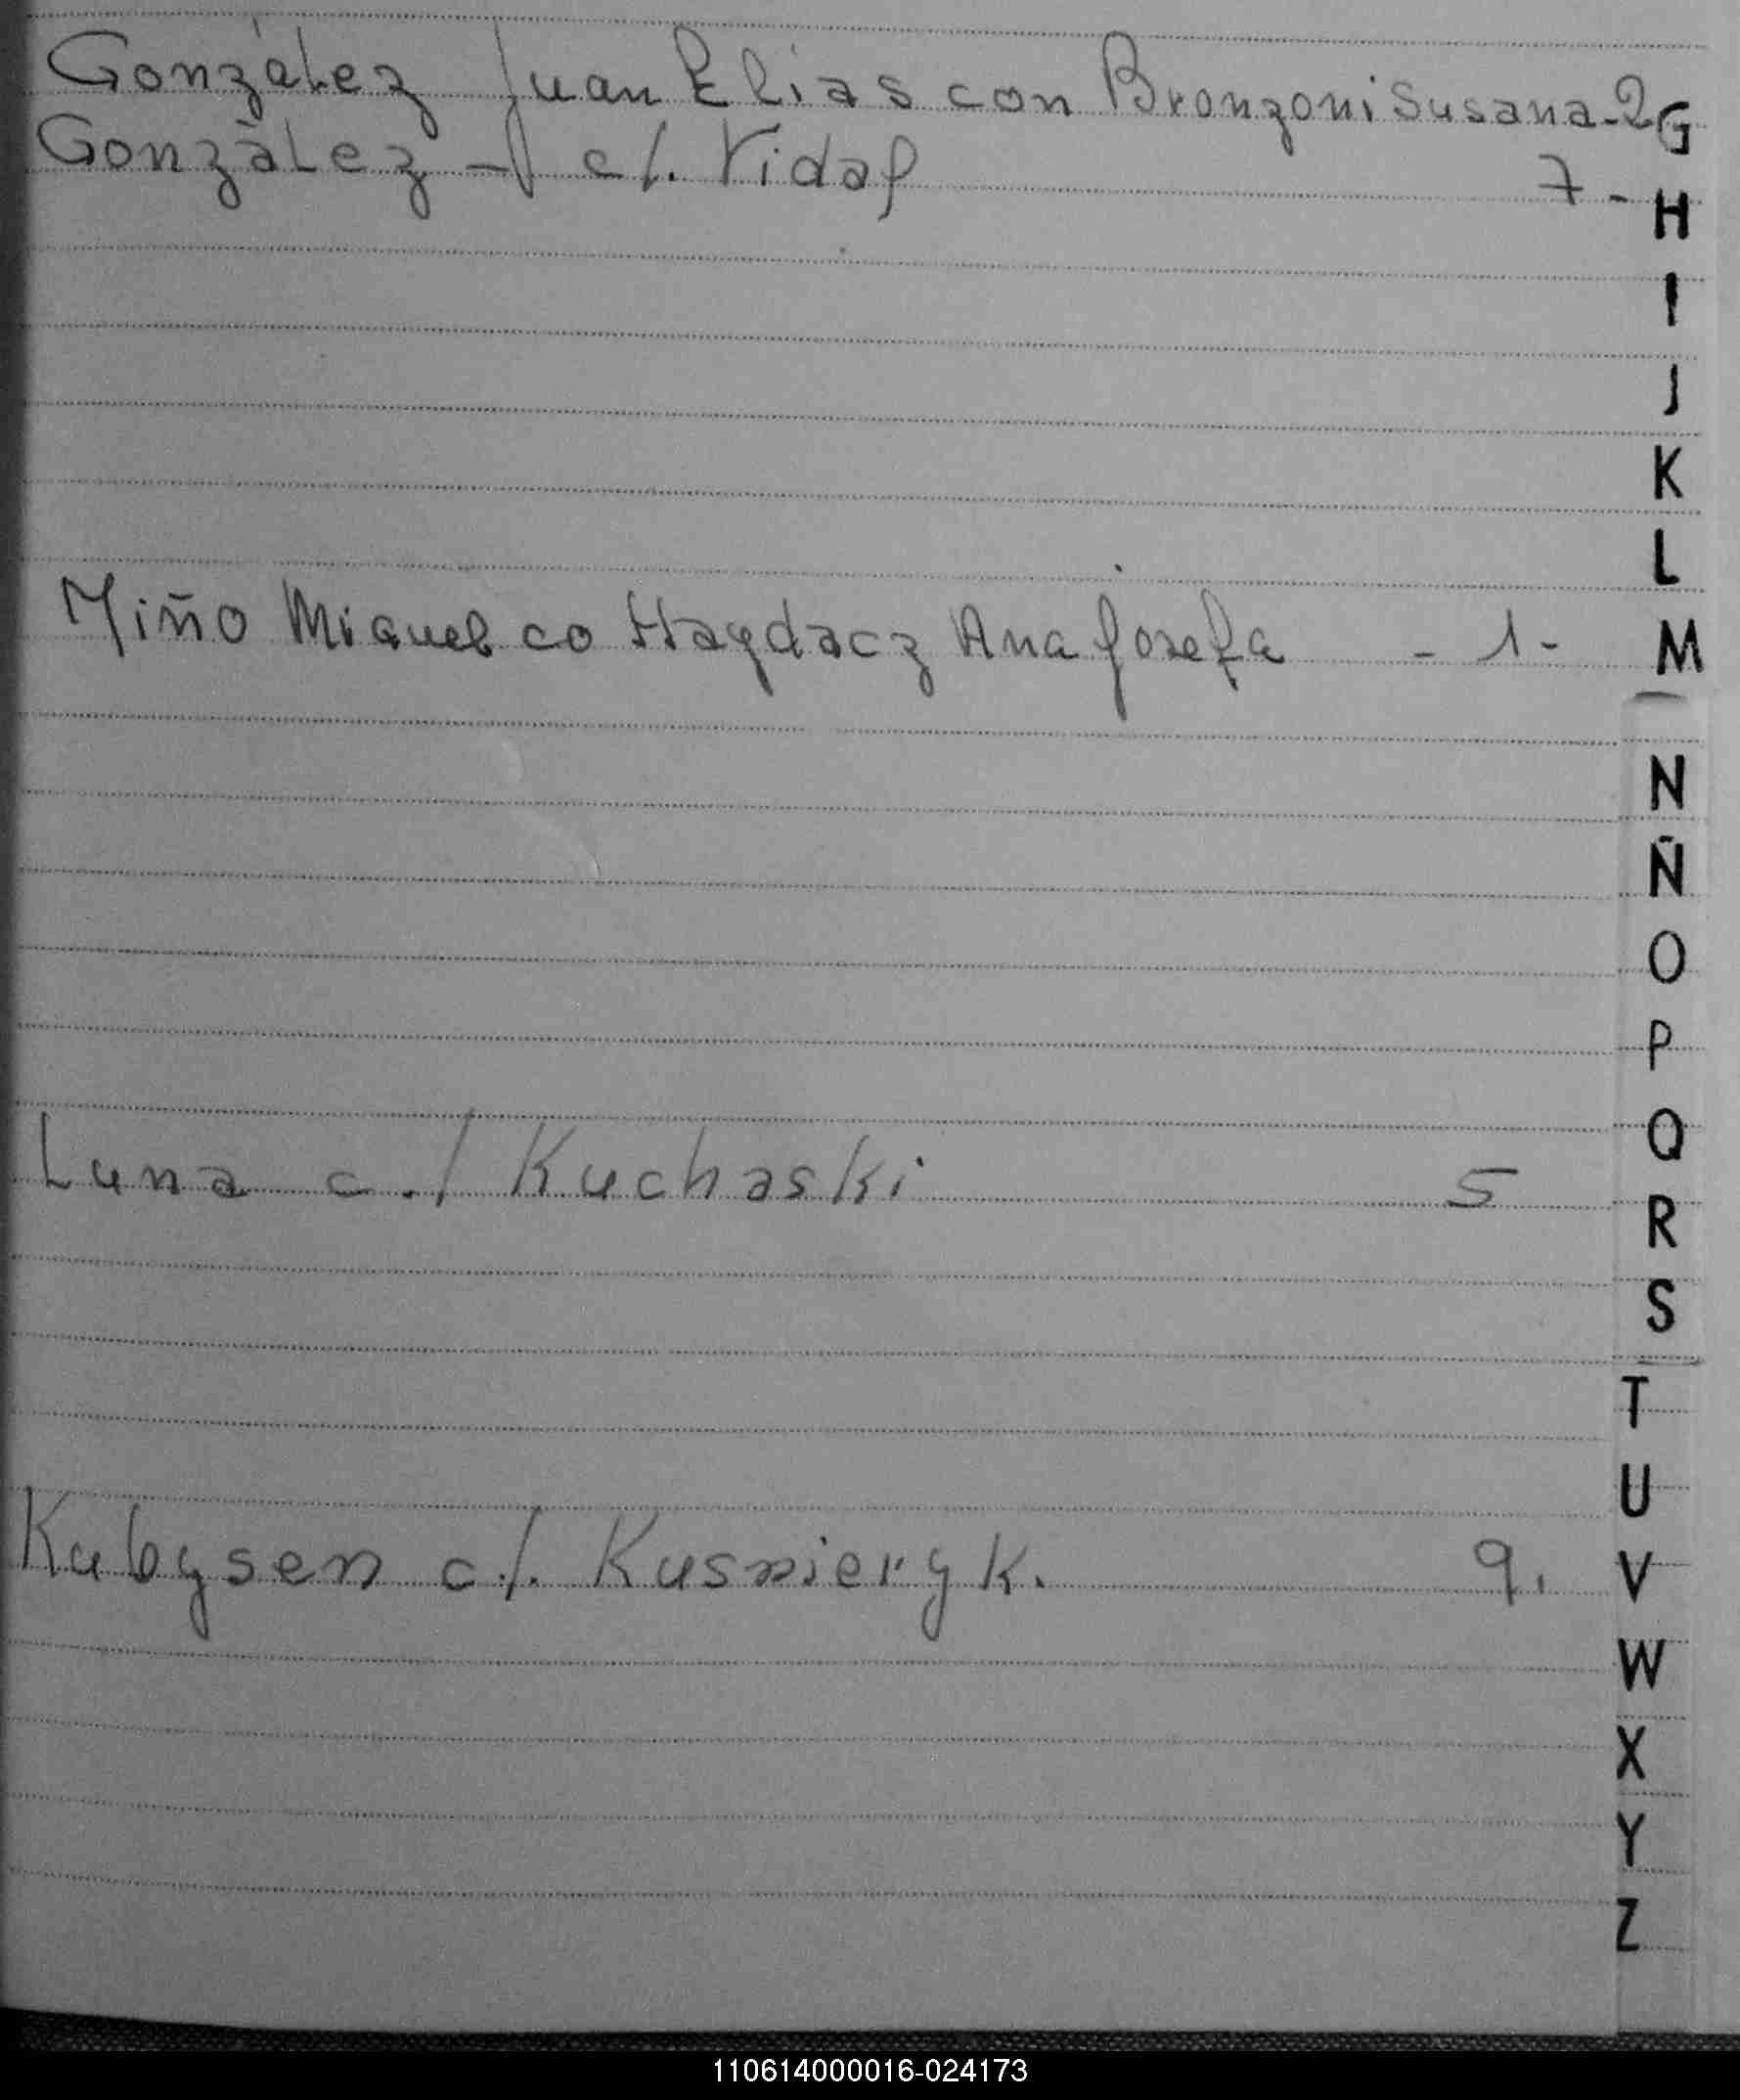 González Juan Elias con Bronzoni Susana - 2 G
González - c/. Vidal 7 - H
I
J
K
L
Miño Miguel co Haydacz Ana Josefa - 1 - M
N
Ñ
O
P
Q
Luna c./ Kuchaski 5
R
S
T
U
Kubysen c/. Kusnieryk. 9. V
W
X
Y
Z
110614000016-024173